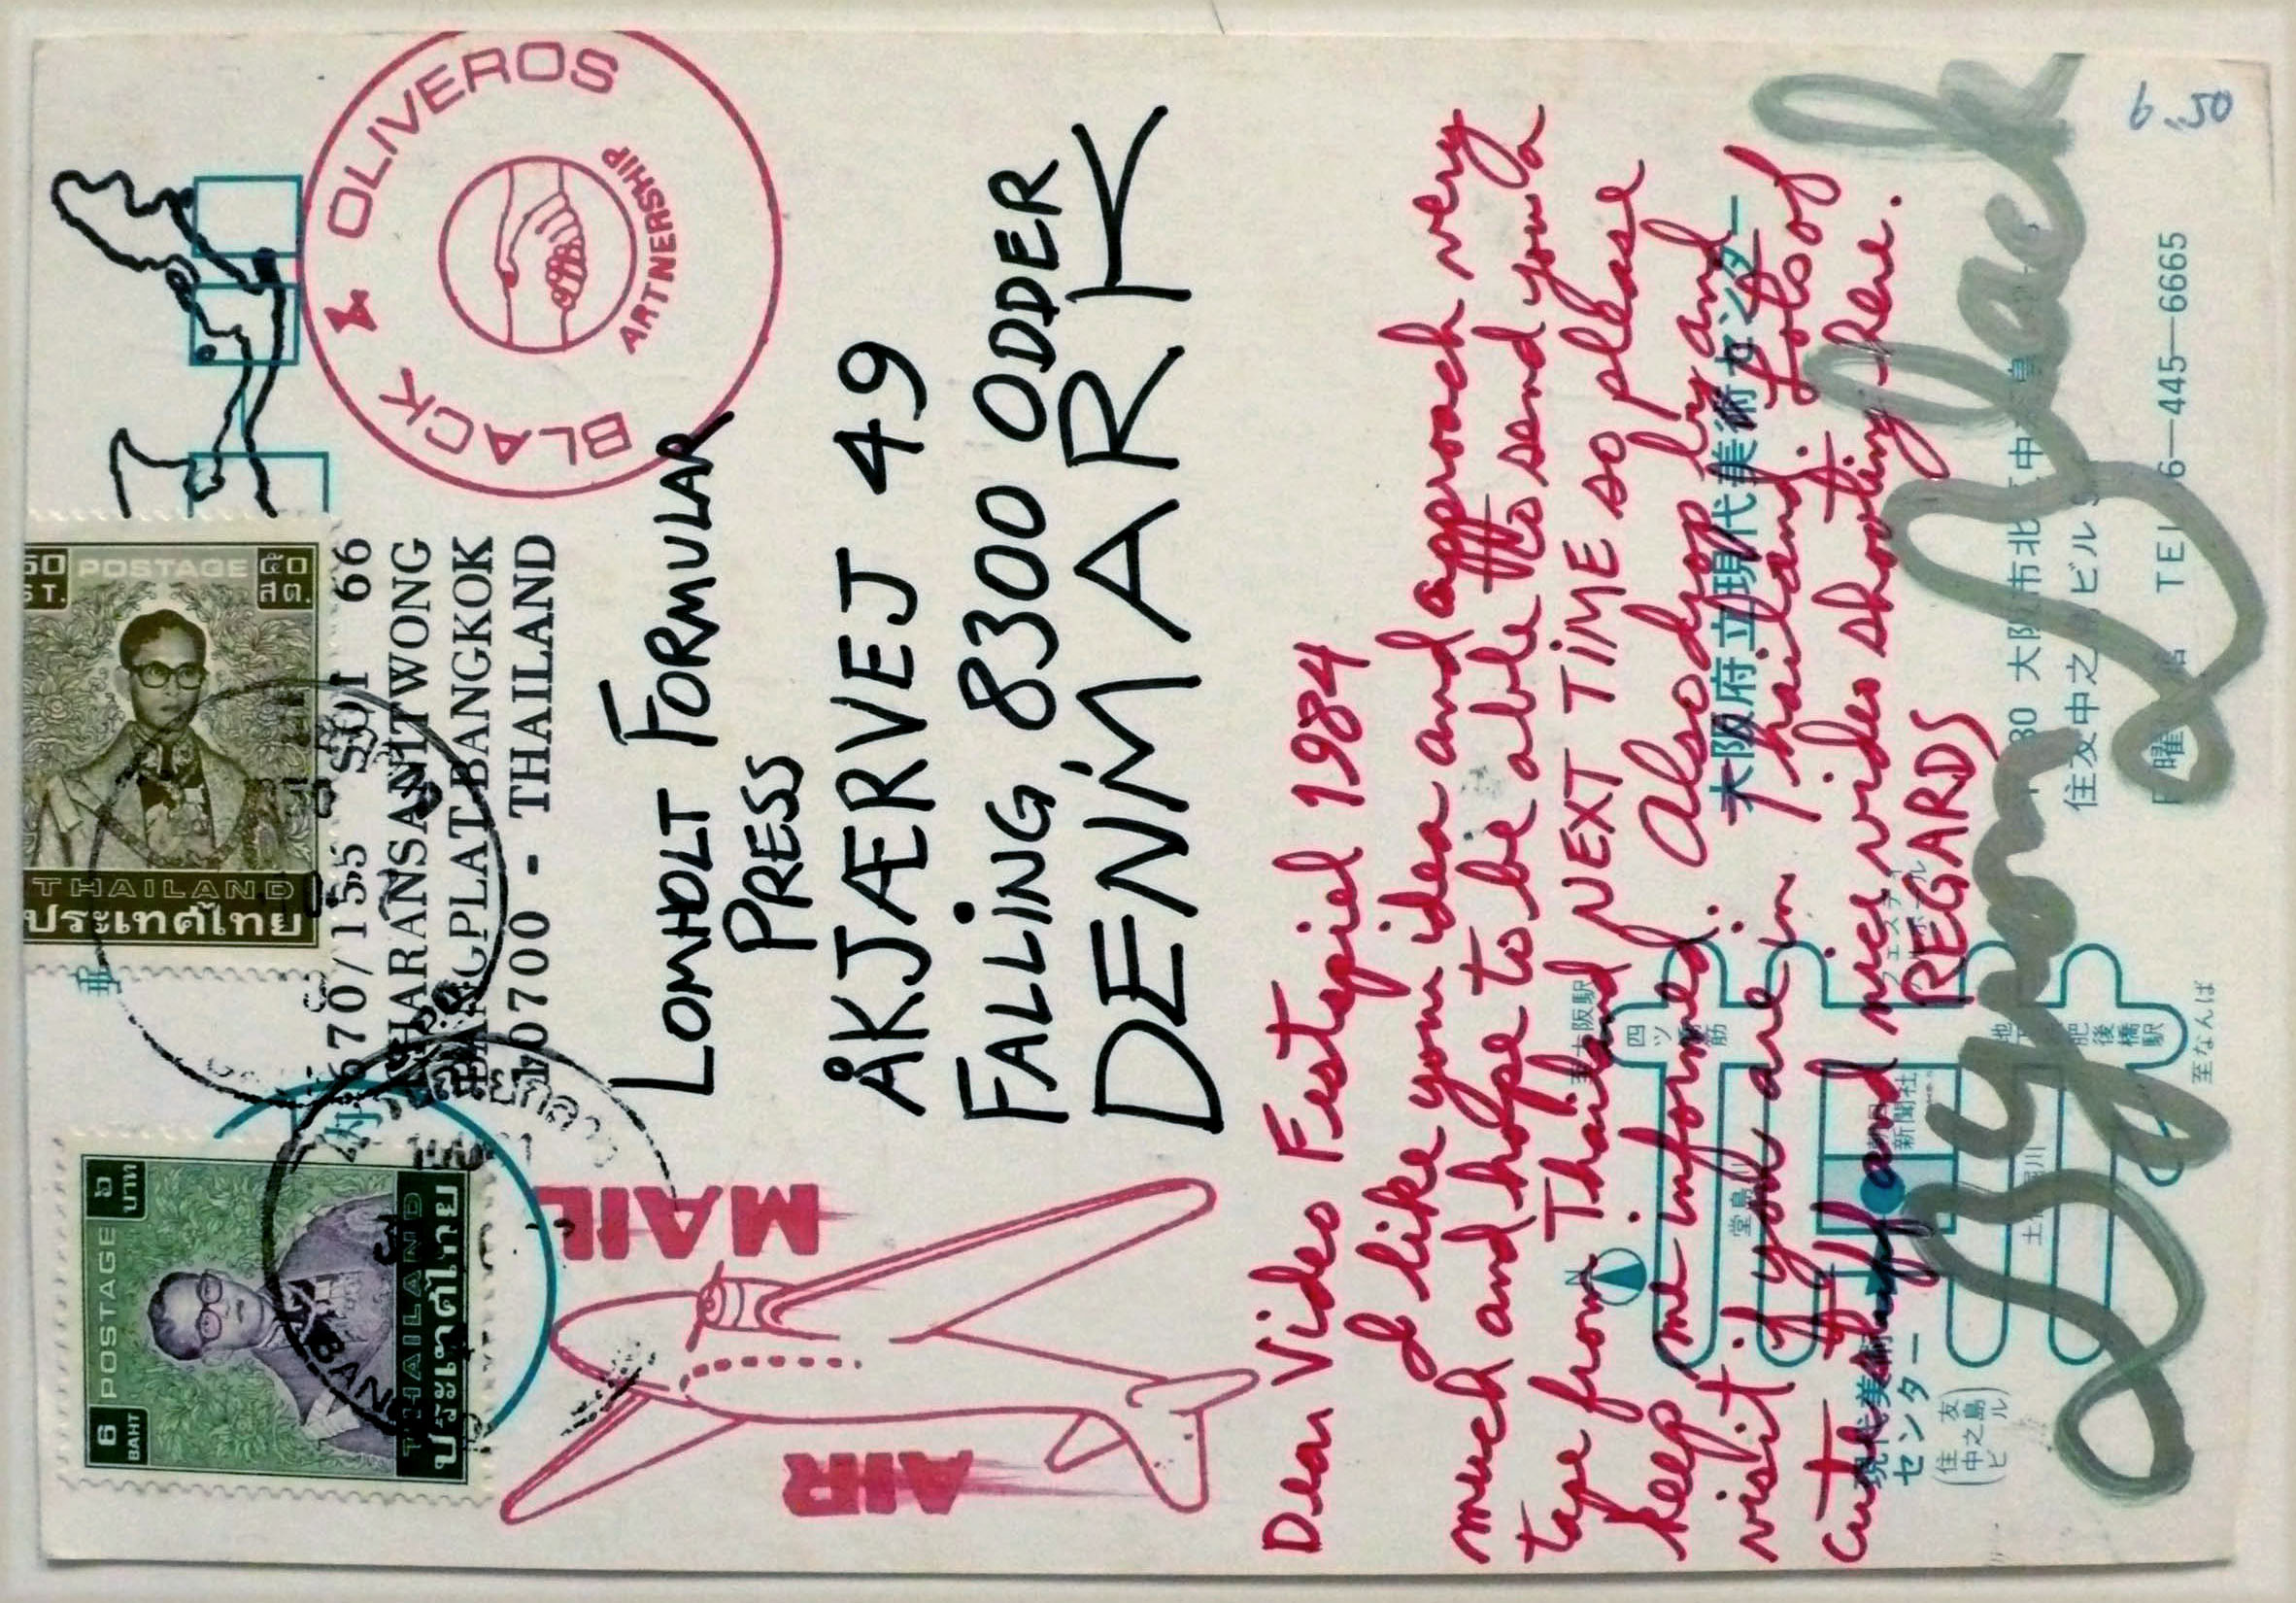 50
ST.
POSTAGE
๕๐
สต.
THAILAND
ประเทศไทย
6
BAHT
POSTAGE
๖
บาท
THAILAND
ประเทศไทย
BANG
BLACK & OLIVEROS
ARTNERSHIP
670/155 SOI 66
CHARANSANITWONG
BANGPLAT BANGKOK
10700 - THAILAND
AIR MAIL
LOMHOLT FORMULAR
PRESS
ÅKJÆRVEJ 49
FALLING 8300 ODDER
DENMARK
Dear Video Festspiel 1984
I like your idea and approach very
much and hope to be able to send you a
tape from Thailand NEXT TIME so please
keep me informed. Also drop by and
visit if you are in Thailand. Lots of
cute stuff and nice video shooting here.
REGARDS
Byron Black
6.50
大阪府立現代美術センター
大阪市北区中之島
住友中之島ビル
TEL 06—445—6665
N
四ツ橋筋
堂島川
朝日新聞社
フェスティバルホール
肥後橋駅
土佐堀川
至なんば
現代美術
センター
(住友
中之島
ビル)